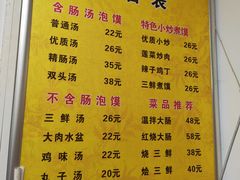 含肠汤泡馍
普通汤 22元
优质汤 26元
精肠汤 35元
双头汤 38元
不含肠泡馍
三鲜汤 26元
大肉水盆 22元
鸡味汤 26元
丸子汤 20元
特色小炒煮馍
优质小炒 26元
莲菜炒肉 26元
辣子鸡丁 26元
三鲜煮馍 26元
菜品推荐
温拌大肠 48元
红烧大肠 58元
烧三鲜 38元
烩三鲜 40元